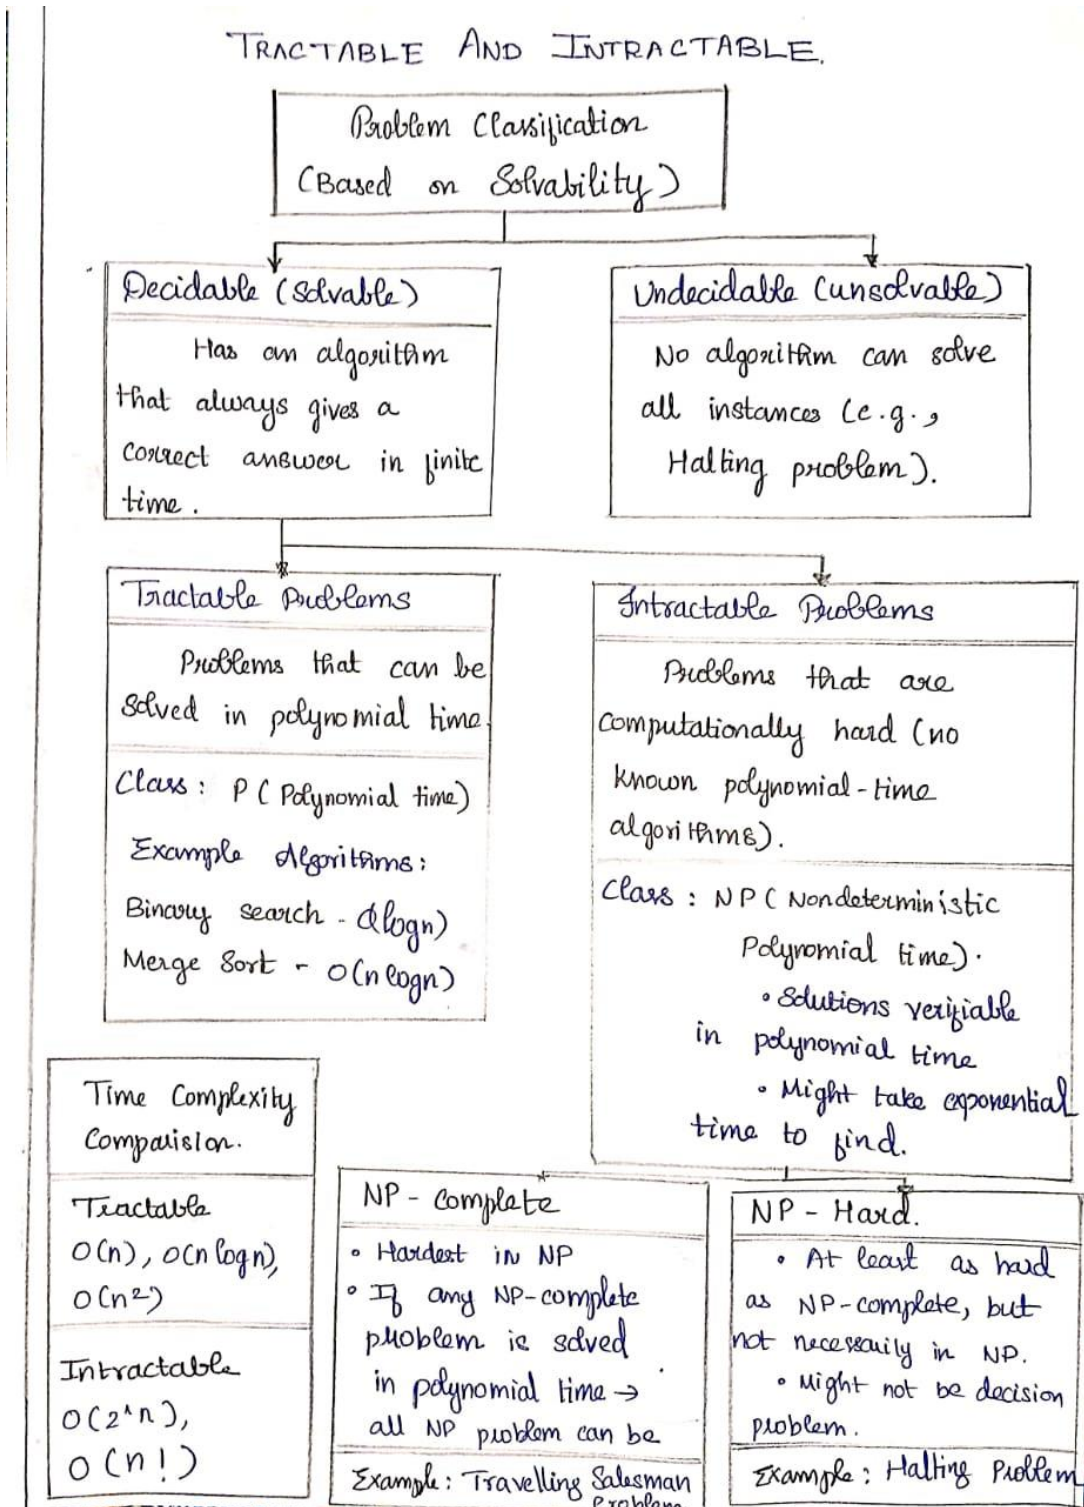 TRACTABLE AND INTRACTABLE.
Problem Classification
(Based on Solvability)
Decidable (Solvable)
Has an algorithm
that always gives a
correct answer in finite
time.
Undecidable (unsolvable)
No algorithm can solve
all instances (e.g.,
Halting problem).
Tractable Problems
Problems that can be
solved in polynomial time.
Class: P (Polynomial time)
Example Algorithms:
Binary search - O(logn)
Merge Sort - O(n logn)
Intractable Problems
Problems that are
computationally hard (no
known polynomial-time
algorithms).
Class: NP (Nondeterministic
Polynomial time).
• Solutions verifiable
in polynomial time
• Might take exponential
time to find.
Time Complexity
Comparision.
Tractable
O(n), O(n logn),
O(n²)
Intractable
O(2^n),
O(n!)
NP-Complete
• Hardest in NP
• If any NP-complete
problem is solved
in polynomial time →
all NP problem can be
Example: Travelling Salesman
Problem
NP-Hard.
• At least as hard
as NP-complete, but
not necessarily in NP.
• Might not be decision
problem.
Example: Halting Problem